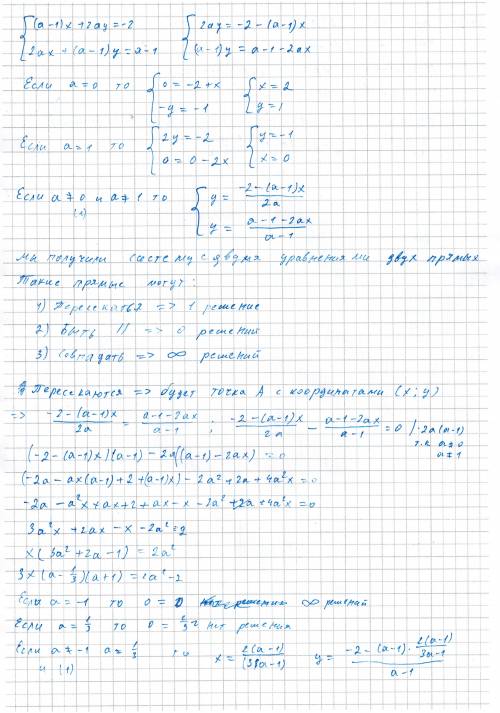 {(a-1)x+2ay=-2 {2ay=-2-(a-1)x
{2ax+(a-1)y=a-1 {(a-1)y=a-1-2ax
Если a=0 то {0=-2+x {x=2
{-y=-1 {y=1
Если a=1 то {2y=-2 {y=-1
{0=0-2x {x=0
Если a≠0 и a≠1 то {y=(-2-(a-1)x)/2a
(1) {y=(a-1-2ax)/(a-1)
Мы получили систему с двумя уравнениями двух прямых
Такие прямые могут:
1) Пересекаться => 1 решение
2) Быть // => 0 решений
3) Совпадать => ∞ решений
Пересекаются => будет точка A с координатами (x; y)
=> (-2-(a-1)x)/2a = (a-1-2ax)/(a-1) ; (-2-(a-1)x)/2a - (a-1-2ax)/(a-1) = 0 |·2a(a-1)
т.к a≠0
a≠1
(-2-(a-1)x)(a-1)-2a((a-1)-2ax)=0
(-2a-ax(a-1)+2+(a-1)x)-2a²+2a+4a²x=0
-2a-a²x+ax+2+ax-x-2a²+2a+4a²x=0
3a²x+2ax-x-2a²=2
x(3a²+2a-1)=2a²
3x(a-1/3)(a+1)=2a²-2
Если a=-1 то 0=0 ∞ решений
Если a=1/3 то 0= нет решения
Если a≠-1 a≠1/3 то x=2(a-1)/(3a-1) y=(-2-(a-1)·2(a-1)/(3a-1))/(a-1)
и (1)